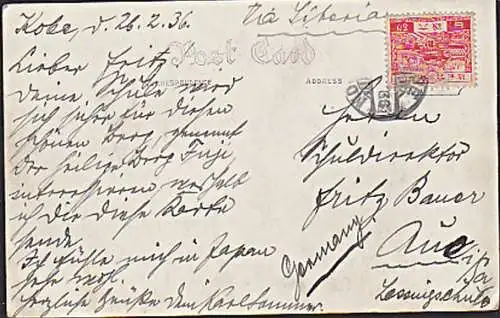 Kobe, d. 26.2.36.
Via Siberia
Post Card
CORRESPONDENCE
ADDRESS
Lieber Fritz
Deine Schule wird
sich sicher für diesen
schönen Berg, genannt
Der heilige Berg Fuji,
interessieren weshalb
ich Dir diese Karte
sende.
Ich fühle mich in Japan
sehr wohl.
Herzliche Grüße Dein Karl Sommer.
Herrn
Schuldirektor
Fritz Bauer
Aue i/Sa
Lessingschule
Germany